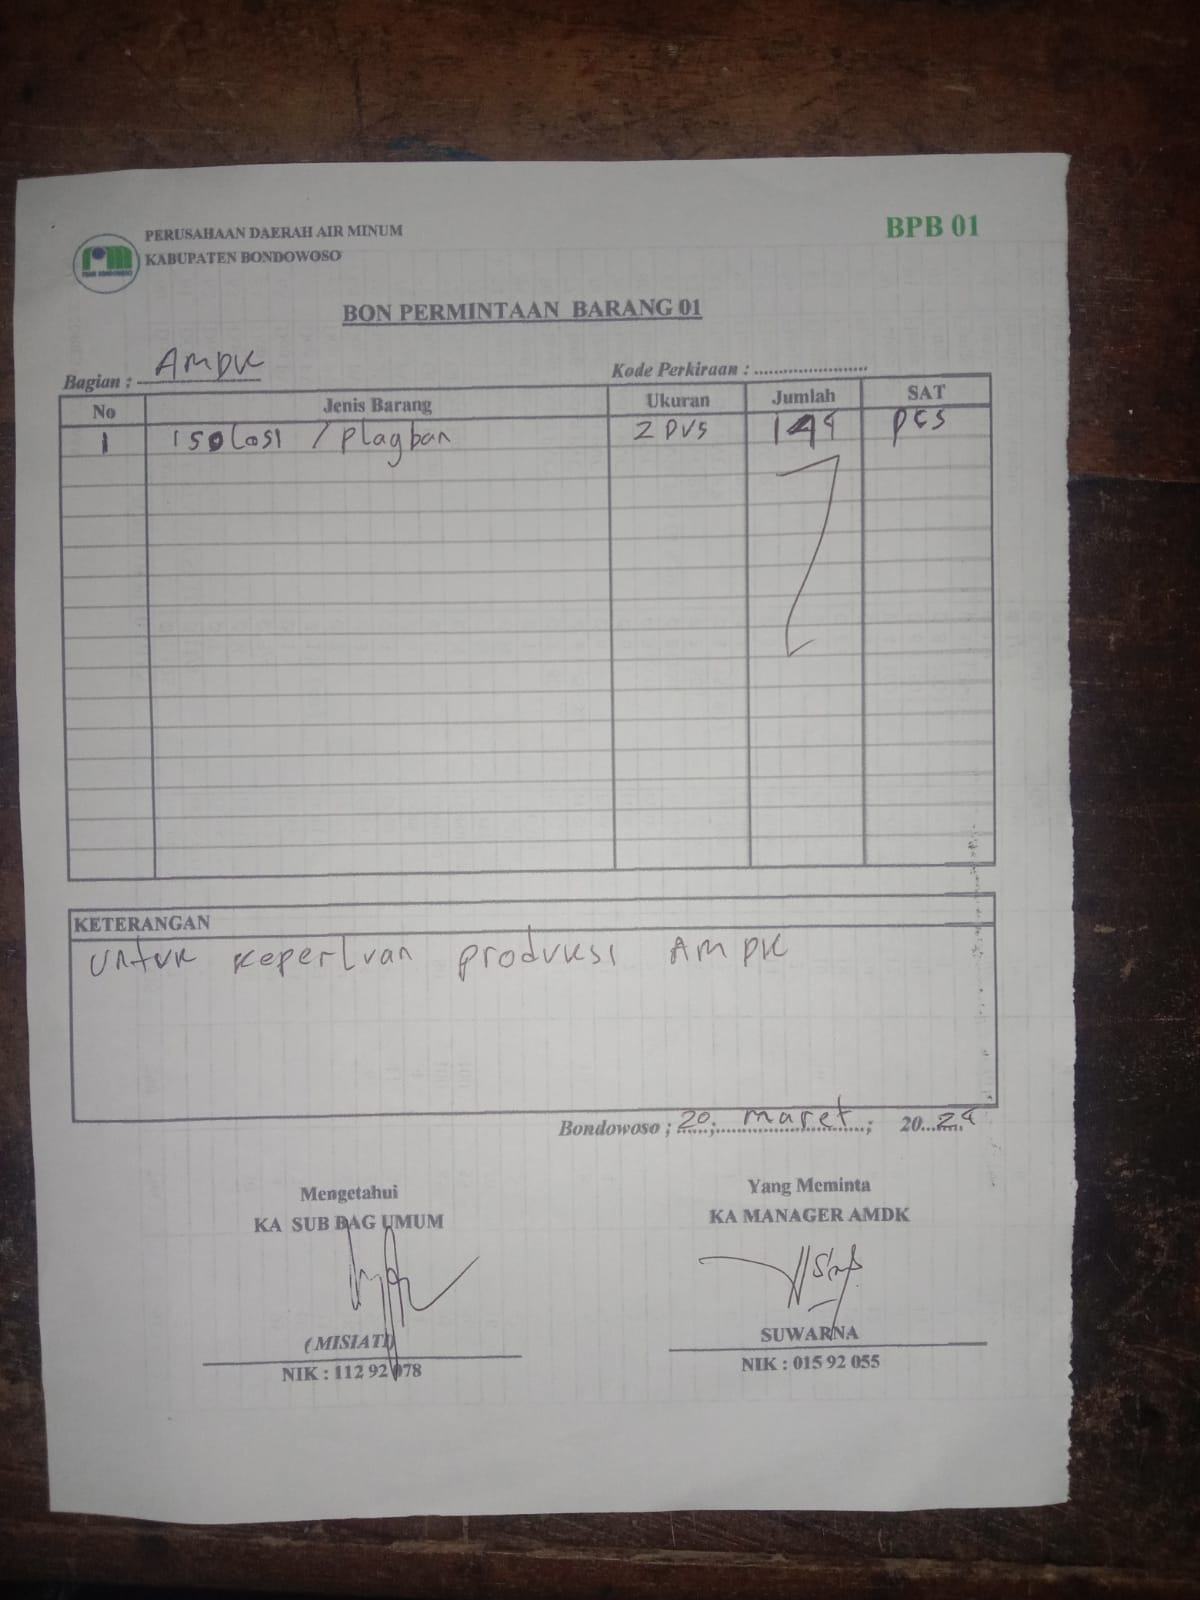 PERUSAHAAN DAERAH AIR MINUM
KABUPATEN BONDOWOSO
BPB 01
BON PERMINTAAN BARANG 01
Bagian : AMDK
Kode Perkiraan : ......................
No Jenis Barang Ukuran Jumlah SAT
1 isolasi / plagban 2 DVS 144 pcs
KETERANGAN
untuk keperluan produksi AMDK
Bondowoso ; 20 ; maret ; 20 24
Mengetahui
KA SUB BAG UMUM
(MISIATI)
NIK : 112 92 078
Yang Meminta
KA MANAGER AMDK
SUWARNA
NIK : 015 92 055